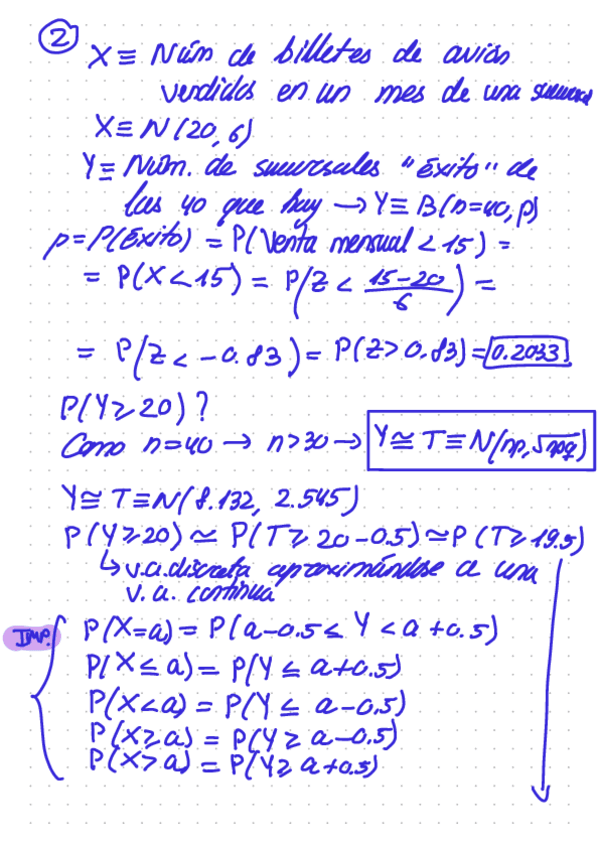 ②
X ≡ Núm de billetes de avión
vendidos en un mes de una sucursal
X ≡ N(20, 6)
Y ≡ Núm. de sucursales "éxito" de
las 40 que hay → Y ≡ B(n=40, p)
p = P(Éxito) = P(Venta mensual < 15) =
= P(X < 15) = P(Z < (15-20)/6) =
= P(Z < -0.83) = P(Z > 0.83) = 0.2033
P(Y ≥ 20)?
Como n=40 → n>30 → Y ≅ T ≡ N(np, √npq)
Y ≅ T ≡ N(8.132, 2.545)
P(Y ≥ 20) ≃ P(T ≥ 20-0.5) ≃ P(T ≥ 19.5)
↳ v.a. discreta aproximándose a una
v.a. continua
Imp.
P(X=a) = P(a-0.5 ≤ Y < a+0.5)
P(X ≤ a) = P(Y ≤ a+0.5)
P(X < a) = P(Y ≤ a-0.5)
P(X ≥ a) = P(Y ≥ a-0.5)
P(X > a) = P(Y ≥ a+0.5)